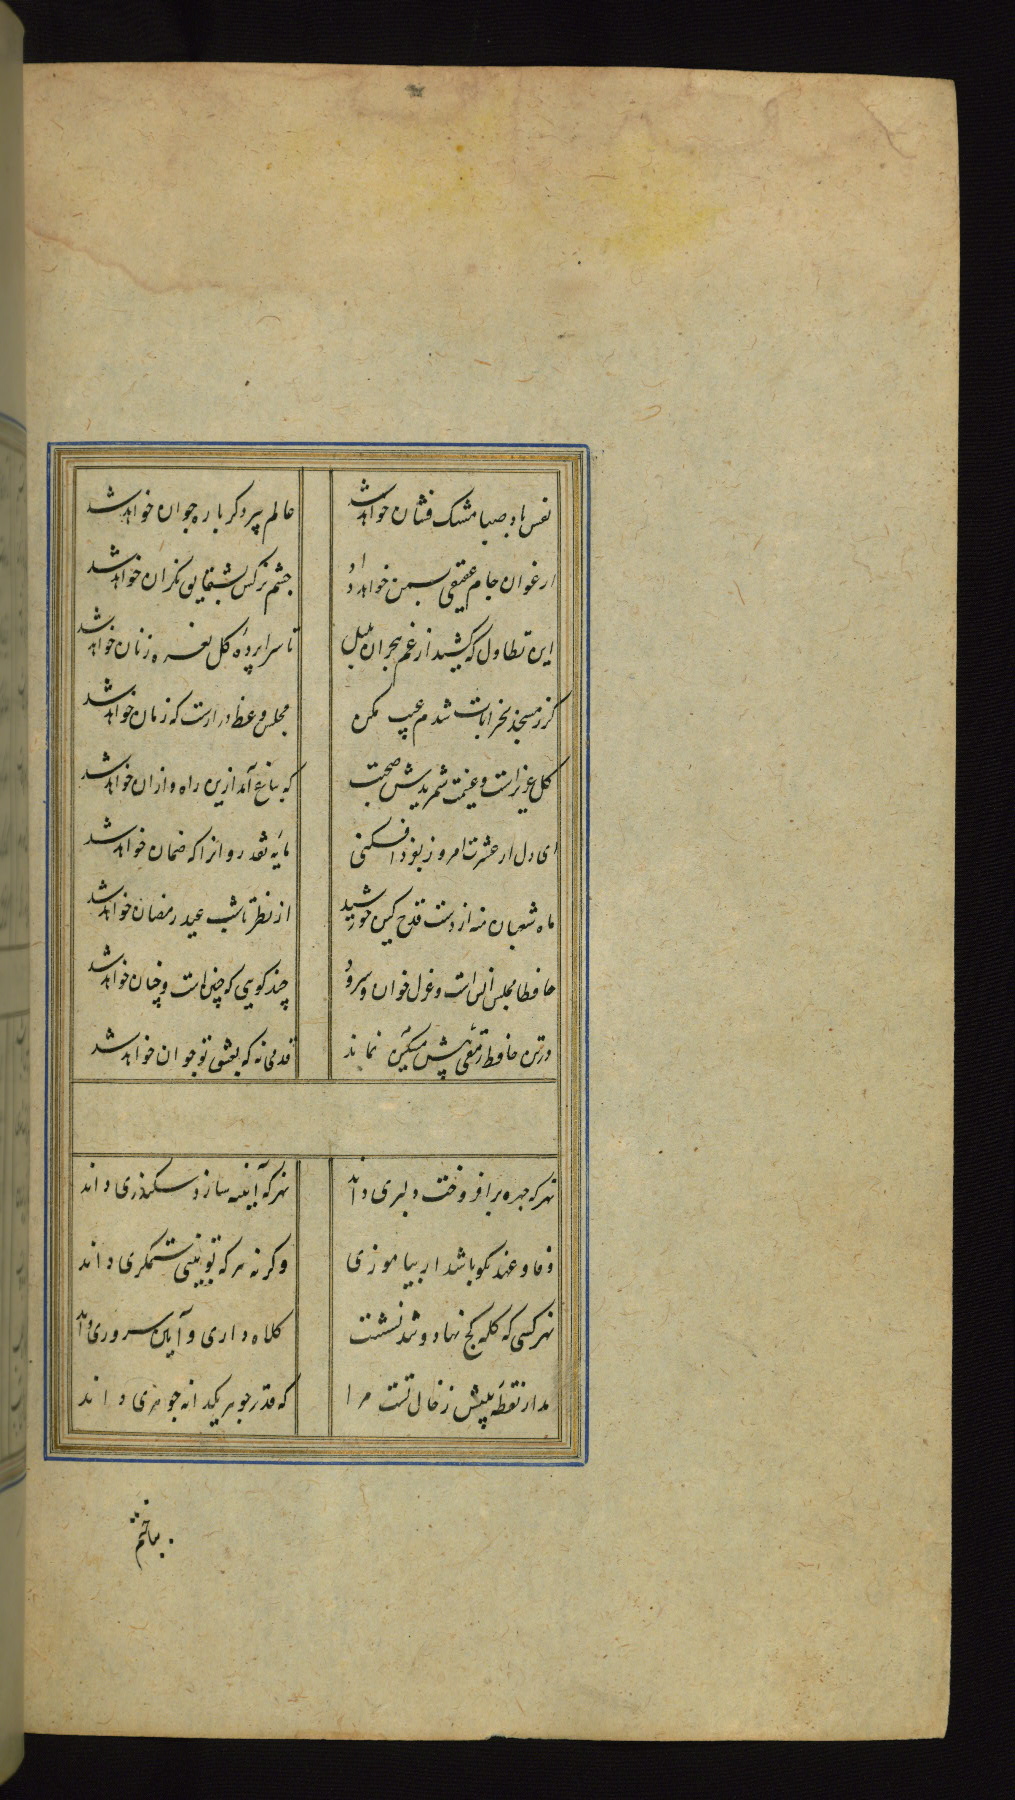 نفس باد صبا مشک فشان خواهد شد
عالم پیر دکر باره جوان خواهد شد
ارغوان جام عقیقی بسمن خواهد داد
چشم نرکس بشقایق نکران خواهد شد
این تطاول که کشید از غم هجران بلبل
تا سراپرده کل نعره زنان خواهد شد
کر ز مسجد بخرابات شدم عیب مکن
مجلس وعظ درازست که زمان خواهد شد
کل عزیزاست و غنیمت شمریدش صحبت
که بباغ آمد ازین راه و ازان خواهد شد
ای دل ار عشرت امروز بفردا فکنی
مایه نقد روانرا که ضمان خواهد شد
ماه شعبان منه از دست قدح کین خورشید
از نظر تا شب عید رمضان خواهد شد
حافظا مجلس انس است و غزل خوان و سرود
چند کویی که چنین است و چنان خواهد شد
در تن حافظ رمقی پیش نماند
قدمی نه که بعشق تو جوان خواهد شد
نهرکه چهره برافروخت دلبری داند
نهرکه آینه سازد سکندری داند
وفا و عهد نکو باشد ار بیاموزی
وکرنه هرکه تو بینی ستمکری داند
نهرکسی که کله کج نهاد و تند نشست
کلاه داری و آیین سروری داند
مدار نقطه بینش ز خال تست مرا
که قدر جوهر یکدانه جوهری داند
بباختم